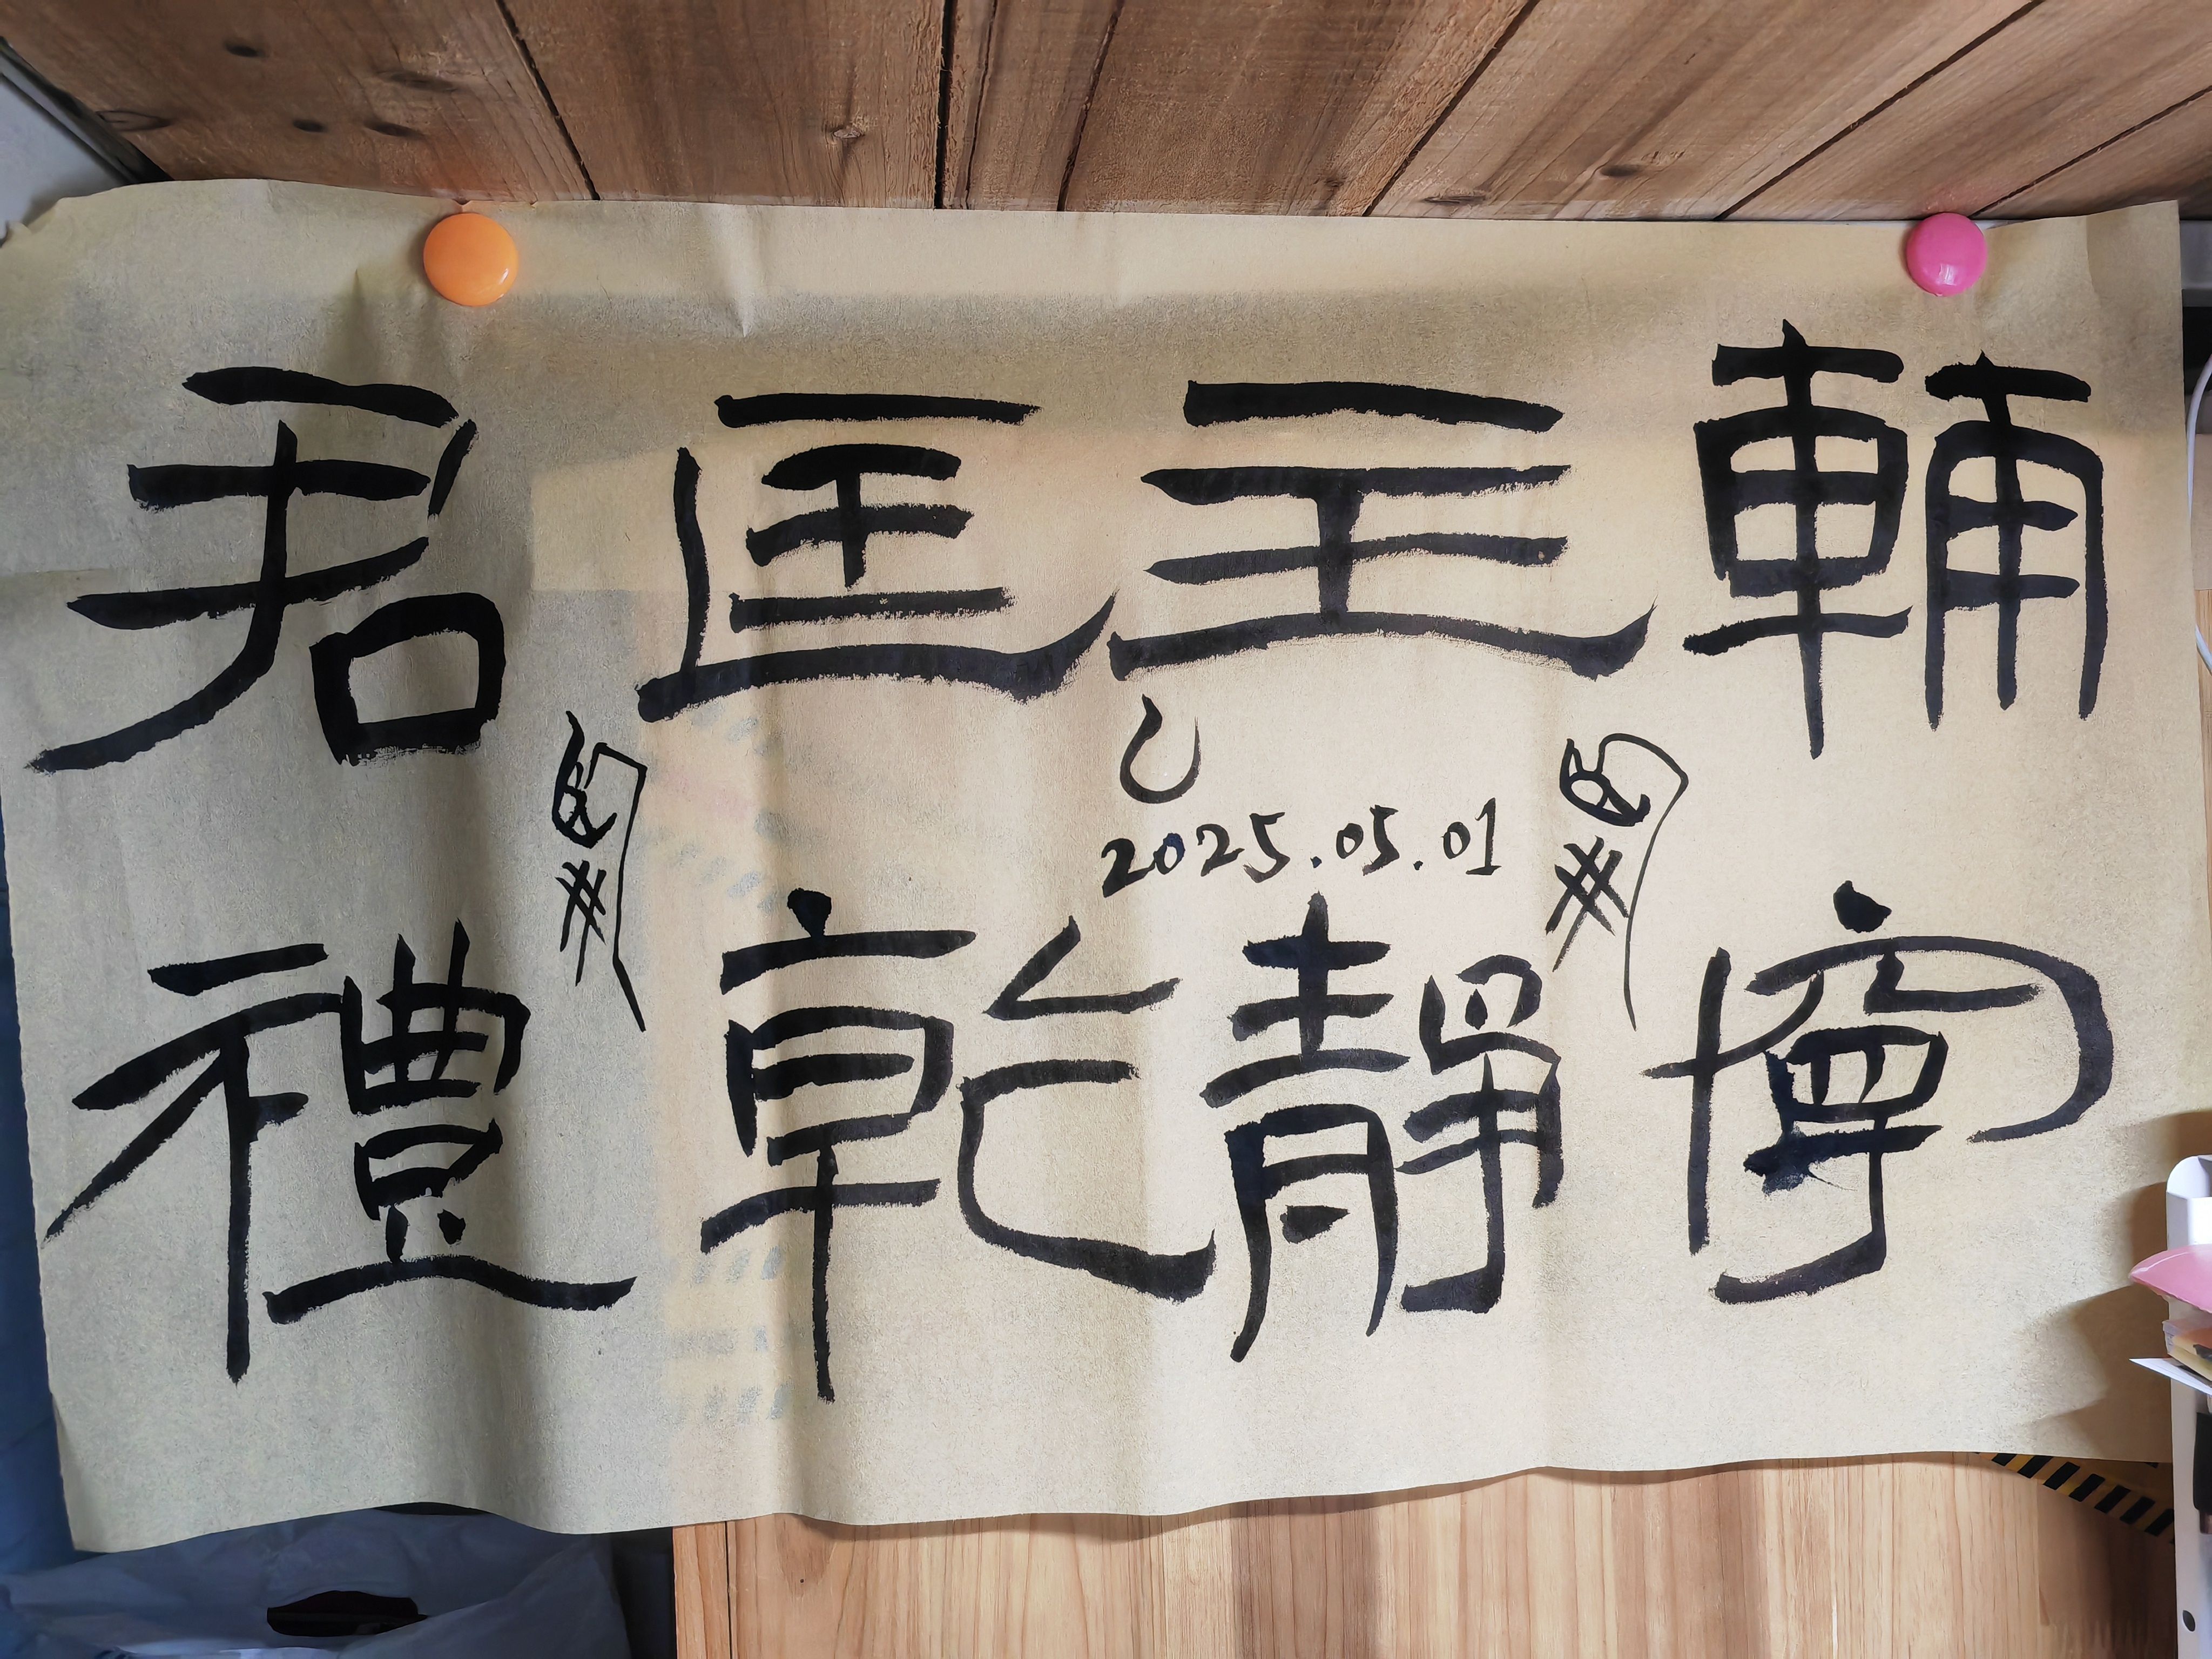 輔主匡君
2025.05.01
寧靜乾禮